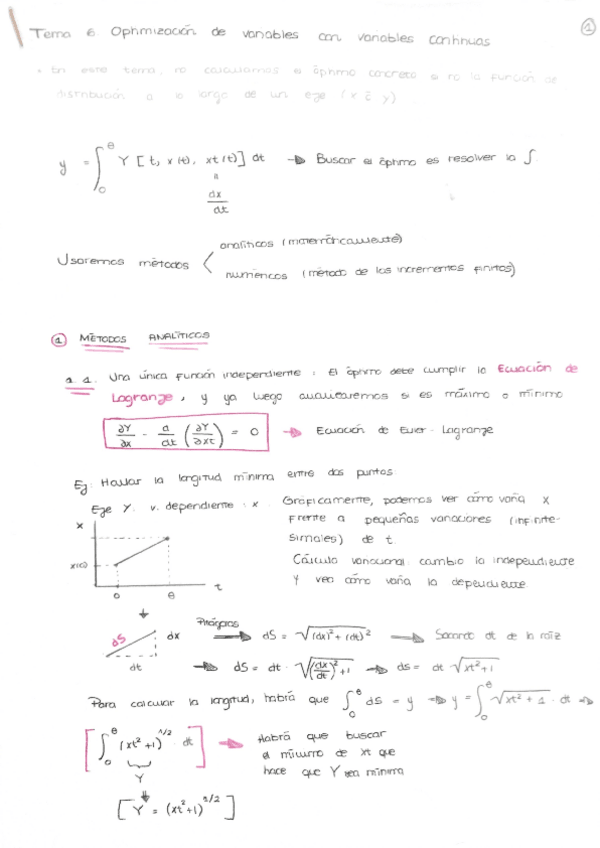 Tema 6 Optimización de variables con variables continuas
①
• En este tema, no calculamos el óptimo concreto si no la función de
distribución a lo largo de un eje (x ó y).
y = ∫₀^θ Y [t, x(t), xt(t)] dt → Buscar el óptimo es resolver la ∫.
dx/dt
analíticos (matemáticamente)
Usaremos métodos <
numéricos (método de los incrementos finitos)
① MÉTODOS ANALÍTICOS
1.1. Una única función independiente: El óptimo debe cumplir la Ecuación de
Lagrange, y ya luego analizaremos si es máximo o mínimo
∂Y/∂x - d/dt (∂Y/∂xt) = 0 → Ecuación de Euler-Lagrange
Ej: Hallar la longitud mínima entre dos puntos:
Eje Y: v. dependiente: x.
Gráficamente, podemos ver cómo varía x
frente a pequeñas variaciones (infinite-
simales) de t.
Cálculo variacional: cambio la independiente
y veo cómo varía la dependiente.
x
x(0)
0 θ t
dS dx
dt
Pitágoras → dS = √((dx)² + (dt)²) → Sacando dt de la raíz
→ dS = dt · √((dx/dt)² + 1) → ds = dt √(xt² + 1)
Para calcular la longitud, habrá que ∫₀^θ dS = y → y = ∫₀^θ √(xt² + 1) · dt →
[∫₀^θ (xt² + 1)^1/2 · dt] → Habrá que buscar
el mínimo de xt que
hace que Y sea mínima
Y
[Y = (xt² + 1)^1/2]